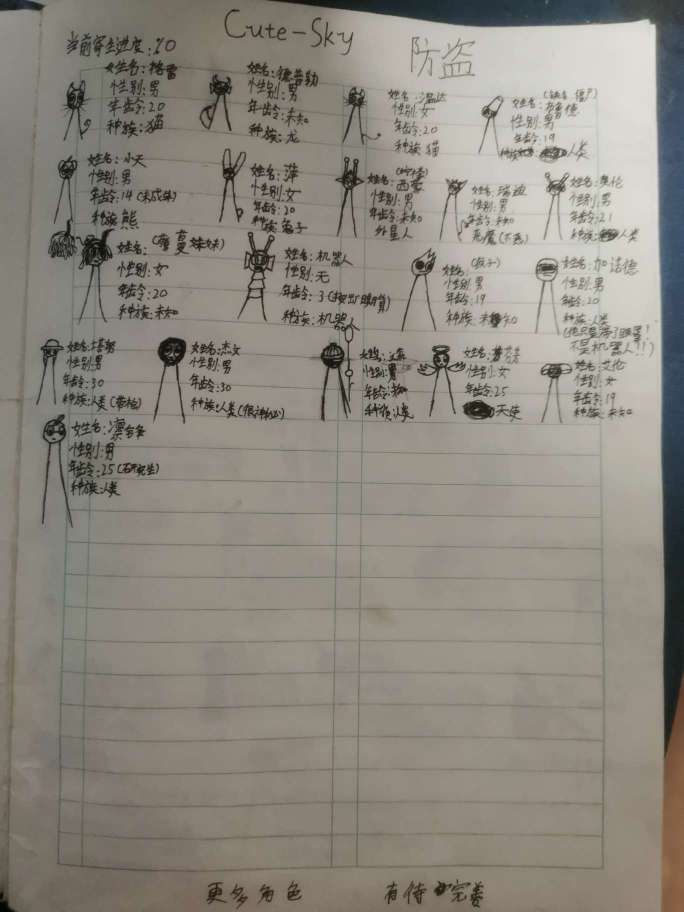 Cute-Sky
防盗
当前寄生进度:%0
姓名:格雷
性别:男
年龄:20
种族:猫
姓名:德普勒
性别:男
年龄:未知
种族:龙
姓名:温达
性别:女
年龄:20
种族:猫
姓名:
性别:男
年龄:19
人类
姓名:小天
性别:男
年龄:14(未成年)
种族:熊
姓名:萍
性别:女
年龄:20
种族:兔子
姓名:西蒙
性别:男
年龄:未知
外星人
姓名:瑞波
性别:男
年龄:未知
恶魔
姓名:奥伦
性别:男
年龄:21
种族:人类
姓名:(蔓蔓妹妹)
性别:女
年龄:20
种族:未知
姓名:机器人
性别:无
年龄:3
种族:机器人
姓名:(疯子)
性别:男
年龄:19
种族:未知
姓名:加诺德
性别:男
年龄:20
种族:人类
(他只是带了眼罩!
不是机器人!!)
姓名:塔努
性别:男
年龄:30
种族:人类(带枪)
姓名:杰文
性别:男
年龄:30
种族:人类(很神秘)
性别:男
种族:人类
性别:女
年龄:25
天使
姓名:艾伦
性别:女
年龄:19
种族:未知
姓名:凛冬
性别:男
年龄:25(研究生)
种族:人类
更多角色
有待完善